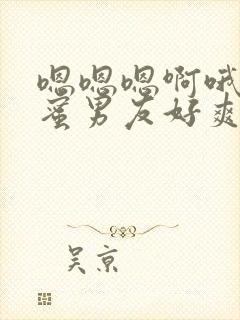 嗯嗯嗯啊哦
蜜男友好爽
吴京